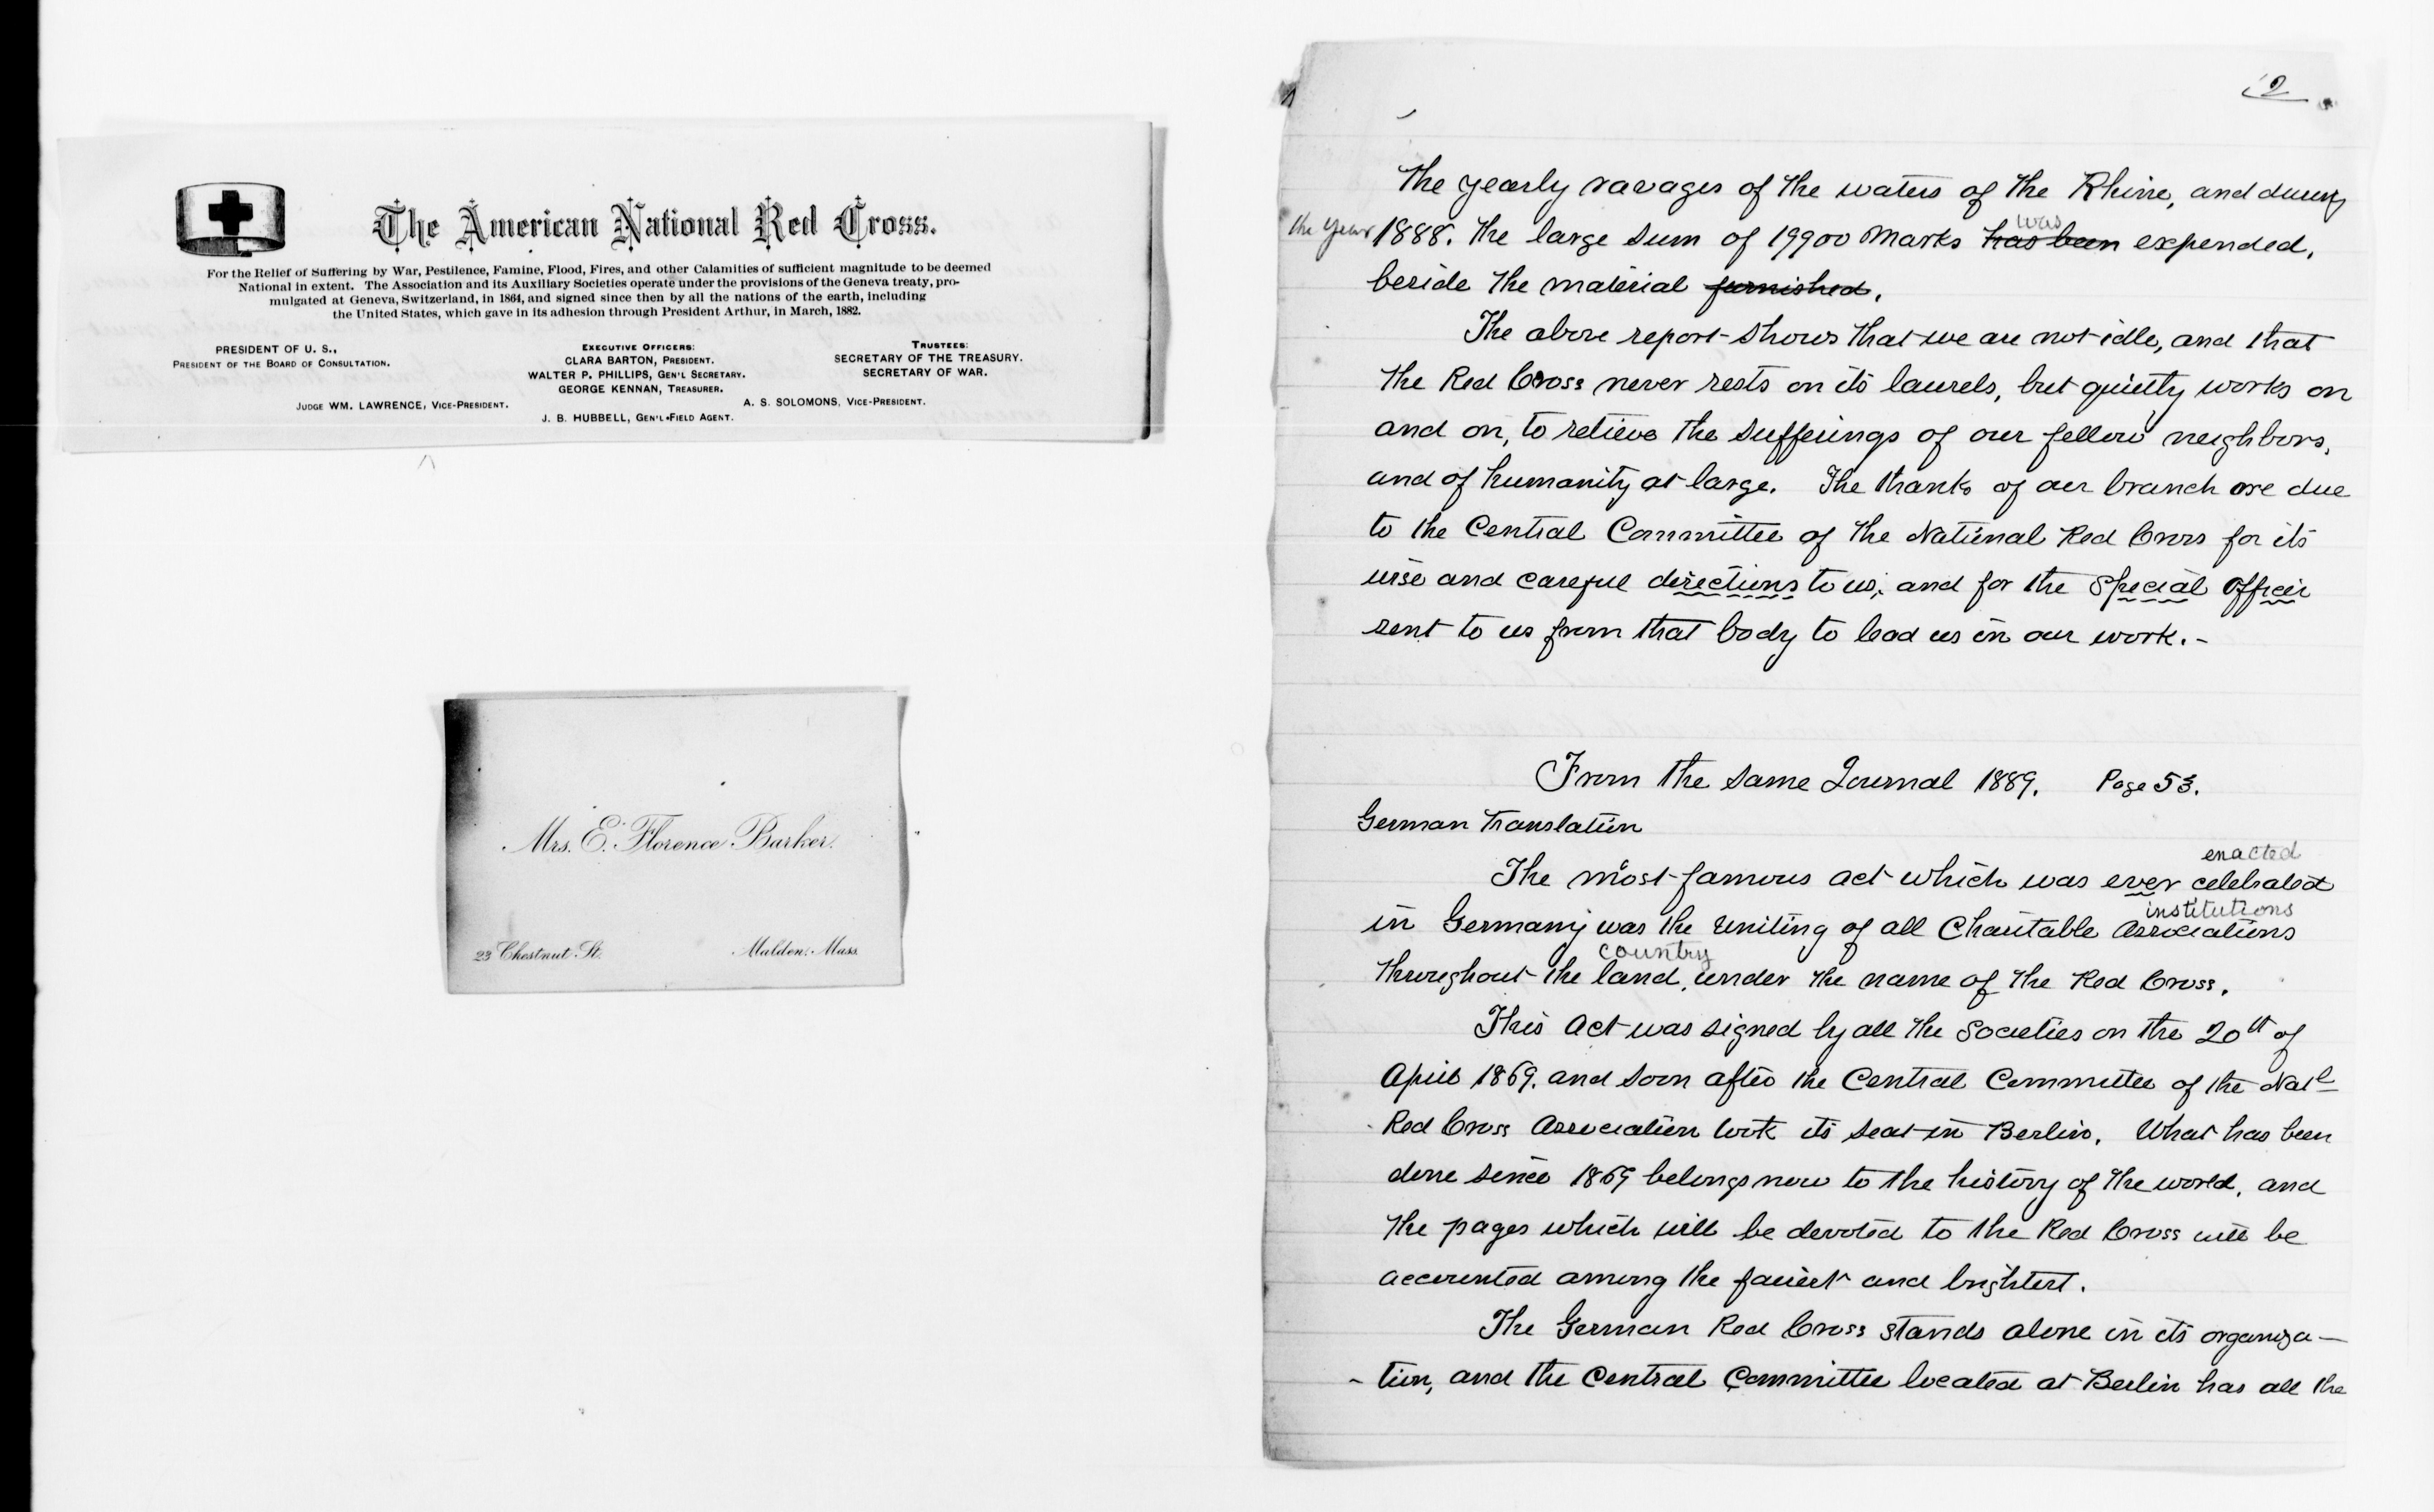 The American National Red Cross.
For the Relief of Suffering by War, Pestilence, Famine, Flood, Fires, and other Calamities of sufficient magnitude to be deemed
National in extent. The Association and its Auxiliary Societies operate under the provisions of the Geneva treaty, pro-
mulgated at Geneva, Switzerland, in 1864, and signed since then by all the nations of the earth, including
the United States, which gave in its adhesion through President Arthur, in March, 1882.
PRESIDENT OF U. S.,
PRESIDENT OF THE BOARD OF CONSULTATION.
EXECUTIVE OFFICERS:
CLARA BARTON, PRESIDENT.
WALTER P. PHILLIPS, GEN'L SECRETARY.
GEORGE KENNAN, TREASURER.
TRUSTEES:
SECRETARY OF THE TREASURY.
SECRETARY OF WAR.
JUDGE WM. LAWRENCE, VICE-PRESIDENT.
A. S. SOLOMONS, VICE-PRESIDENT.
J. B. HUBBELL, GEN'L FIELD AGENT.
Mrs. E. Florence Barker.
23 Chestnut St.
Malden, Mass.
2
The yearly ravages of the waters of the Rhine, and during
was
the year 1888. The large sum of 19900 Marks has been expended,
beside the material furnished.
The above report shows that we are not idle, and that
the Red Cross never rests on its laurels, but quietly works on
and on, to relieve the sufferings of our fellow neighbors,
and of humanity at large. The thanks of our branch are due
to the Central Committee of the National Red Cross for its
wise and careful directions to us; and for the Special Officer
sent to us from that body to lead us in our work. -
From the same Journal 1889. Page 53.
German Translation
enacted
The most famous act which was ever celebrated
institutions
in Germany was the uniting of all Charitable Associations
country
throughout the land, under the name of the Red Cross.
This Act was signed by all the Societies on the 20th of
April 1869. and soon after the Central Committee of the Natl
Red Cross Association took its seat in Berlin. What has been
done since 1869 belongs now to the history of the world, and
the pages which will be devoted to the Red Cross will be
accounted among the fairest and brightest.
The German Red Cross stands alone in its organiza-
-tion, and the Central Committee located at Berlin has all the